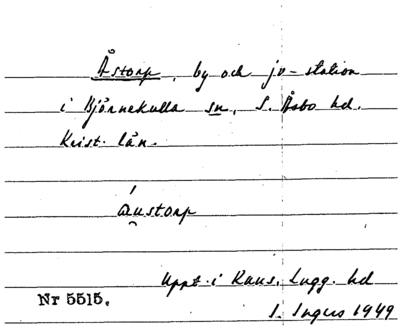 Åstorp, by och jv-station
i Björnekulla sn, S. Åsbo hd.
Krist. län.
áustorp
Uppt. i Knus, Lugg. hd
Nr 5515.
I. Ingers 1949